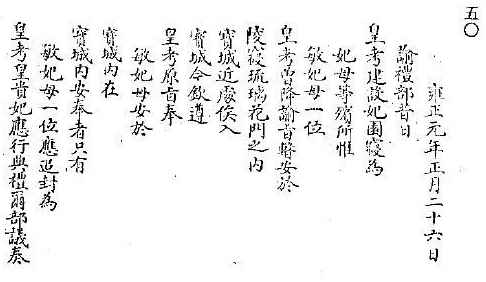 五〇
雍正元年正月二十六日
諭禮部昔日
皇考建設妃園寢為
妃母等殯所惟
敏妃母一位
皇考曾降諭旨暫安於
陵寢琉璃花門之內
寶城近處俟入
寶城今欽遵
皇考原旨奉
敏妃母安於
寶城內在
寶城內安奉者只有
敏妃母一位應追封為
皇考皇貴妃應行典禮爾部議奏